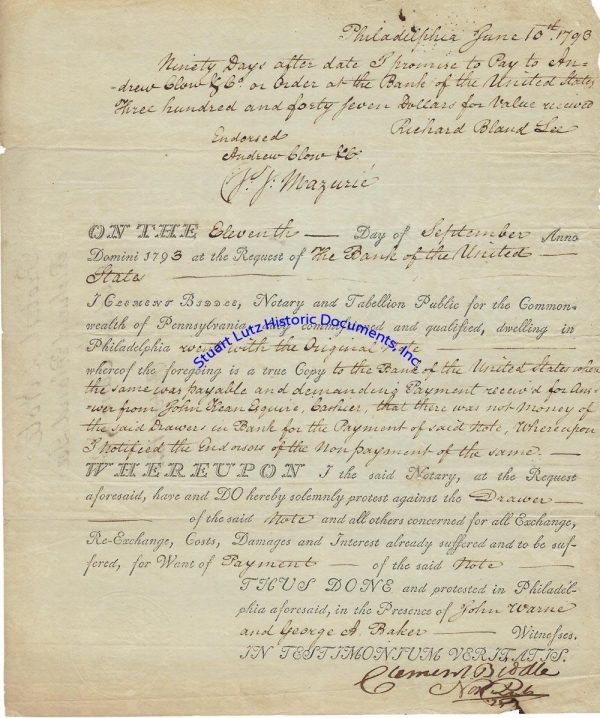 Philadelphia June 10th. 1793
Ninety Days after date I promise to Pay to An-
drew Clow & Co. or Order at the Bank of the United States
Three hundred and forty seven Dollars for Value received
Richard Bland Lee
Endorsed
Andrew Clow & Co.
J. J. Mazurié
ON THE Eleventh — Day of September Anno
Domini 1793 at the Request of The Bank of the United —
State
I CLEMENT BIDDLE, Notary and Tabellion Public for the Common-
wealth of Pennsylvania, commissioned and qualified, dwelling in
Philadelphia went with the Original
whereof the foregoing is a true Copy to the Bank of the United States where
the same was payable and demanding Payment receiv'd for Ans-
wer from John Kean Esquire, Cashier, that there was not Money of
the said Drawers in Bank for the Payment of said Note, Whereupon
I Notified the Endorsors of the Non payment of the same. —
WHEREUPON I the said Notary, at the Request
aforesaid, have and DO hereby solemnly protest against the Drawer —
— of the said Note — and all others concerned for all Exchange,
Re-Exchange, Costs, Damages and Interest already suffered and to be suf-
fered, for Want of Payment — of the said Note —
THUS DONE and protested in Philadel-
phia aforesaid, in the Presence of John Warne
and George A. Baker — Witnesses.
IN TESTIMONIUM VERITATIS.
Clement Biddle
Not. Pub.
Stuart Lutz Historic Documents, Inc.